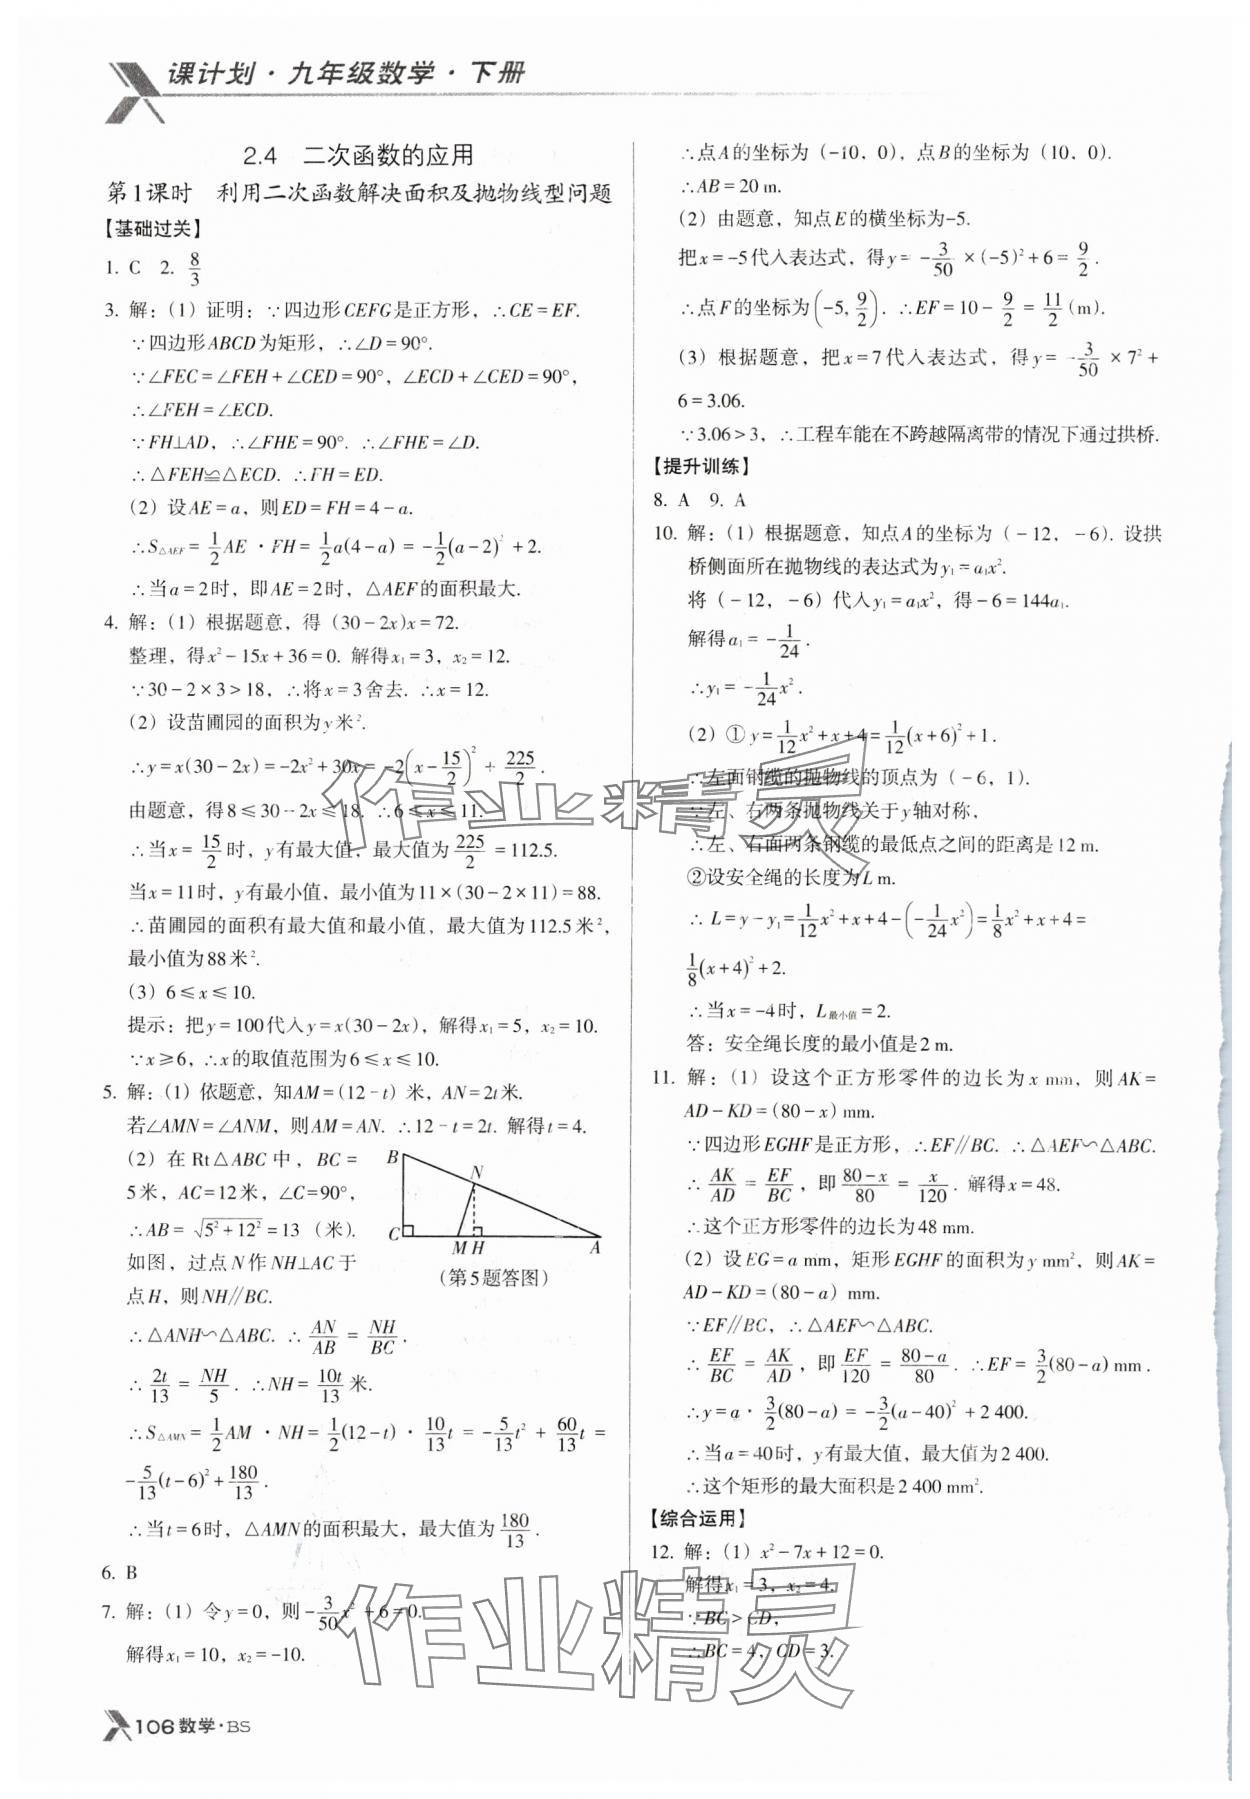 课计划·九年级数学·下册
2.4 二次函数的应用
第1课时 利用二次函数解决面积及抛物线型问题
【基础过关】
1. C 2. 8/3
3. 解：(1) 证明：∵四边形CEFG是正方形，∴CE=EF.
∵四边形ABCD为矩形，∴∠D=90°.
∵∠FEC=∠FEH+∠CED=90°，∠ECD+∠CED=90°，
∴∠FEH=∠ECD.
∵FH⊥AD，∴∠FHE=90°. ∴∠FHE=∠D.
∴△FEH≌△ECD. ∴FH=ED.
(2) 设AE=a，则ED=FH=4-a.
∴S△AEF=1/2 AE·FH=1/2 a(4-a)=-1/2(a-2)²+2.
∴当a=2时，即AE=2时，△AEF的面积最大.
4. 解：(1) 根据题意，得 (30-2x)x=72.
整理，得x²-15x+36=0. 解得x₁=3，x₂=12.
∵30-2×3>18，∴将x=3舍去. ∴x=12.
(2) 设苗圃园的面积为y米².
∴y=x(30-2x)=-2x²+30x=-2(x-15/2)²+225/2.
由题意，得8≤30-2x≤18. ∴6≤x≤11.
∴当x=15/2时，y有最大值，最大值为225/2=112.5.
当x=11时，y有最小值，最小值为11×(30-2×11)=88.
∴苗圃园的面积有最大值和最小值，最大值为112.5米²，
最小值为88米².
(3) 6≤x≤10.
提示：把y=100代入y=x(30-2x)，解得x₁=5，x₂=10.
∵x≥6，∴x的取值范围为6≤x≤10.
5. 解：(1) 依题意，知AM=(12-t) 米，AN=2t米.
若∠AMN=∠ANM，则AM=AN. ∴12-t=2t. 解得t=4.
(2) 在Rt△ABC中，BC=
5米，AC=12米，∠C=90°，
∴AB=√(5²+12²)=13 (米).
如图，过点N作NH⊥AC于
点H，则NH∥BC.
B
N
C
M H
A
(第5题答图)
∴△ANH∽△ABC. ∴AN/AB=NH/BC.
∴2t/13=NH/5. ∴NH=10t/13米.
∴S△AMN=1/2 AM·NH=1/2(12-t)·10/13 t=-5/13 t²+60/13 t=
-5/13(t-6)²+180/13.
∴当t=6时，△AMN的面积最大，最大值为180/13.
6. B
7. 解：(1) 令y=0，则-3/50 x²+6=0.
解得x₁=10，x₂=-10.
∴点A的坐标为 (-10，0)，点B的坐标为 (10，0).
∴AB=20 m.
(2) 由题意，知点E的横坐标为-5.
把x=-5代入表达式，得y=-3/50×(-5)²+6=9/2.
∴点F的坐标为(-5, 9/2). ∴EF=10-9/2=11/2(m).
(3) 根据题意，把x=7代入表达式，得y=-3/50×7²+
6=3.06.
∵3.06>3，∴工程车能在不跨越隔离带的情况下通过拱桥.
【提升训练】
8. A 9. A
10. 解：(1) 根据题意，知点A的坐标为 (-12，-6). 设拱
桥侧面所在抛物线的表达式为y₁=a₁x².
将 (-12，-6) 代入y₁=a₁x²，得-6=144a₁.
解得a₁=-1/24.
∴y₁=-1/24 x².
(2) ①y=1/12 x²+x+4=1/12(x+6)²+1.
∴左面钢缆的抛物线的顶点为 (-6，1).
∵左、右两条抛物线关于y轴对称，
∴左、右面两条钢缆的最低点之间的距离是12 m.
②设安全绳的长度为L m.
∴L=y-y₁=1/12 x²+x+4-(-1/24 x²)=1/8 x²+x+4=
1/8(x+4)²+2.
∴当x=-4时，L最小值=2.
答：安全绳长度的最小值是2 m.
11. 解：(1) 设这个正方形零件的边长为x mm，则AK=
AD-KD=(80-x) mm.
∵四边形EGHF是正方形，∴EF∥BC. ∴△AEF∽△ABC.
∴AK/AD=EF/BC，即(80-x)/80=x/120. 解得x=48.
∴这个正方形零件的边长为48 mm.
(2) 设EG=a mm，矩形EGHF的面积为y mm²，则AK=
AD-KD=(80-a) mm.
∵EF∥BC，∴△AEF∽△ABC.
∴EF/BC=AK/AD，即EF/120=(80-a)/80. ∴EF=3/2(80-a) mm.
∴y=a·3/2(80-a)=-3/2(a-40)²+2 400.
∴当a=40时，y有最大值，最大值为2 400.
∴这个矩形的最大面积是2 400 mm².
【综合运用】
12. 解：(1) x²-7x+12=0.
解得x₁=3，x₂=4.
∵BC>CD，
∴BC=4，CD=3.
作业精灵
作业精灵
106 数学·BS